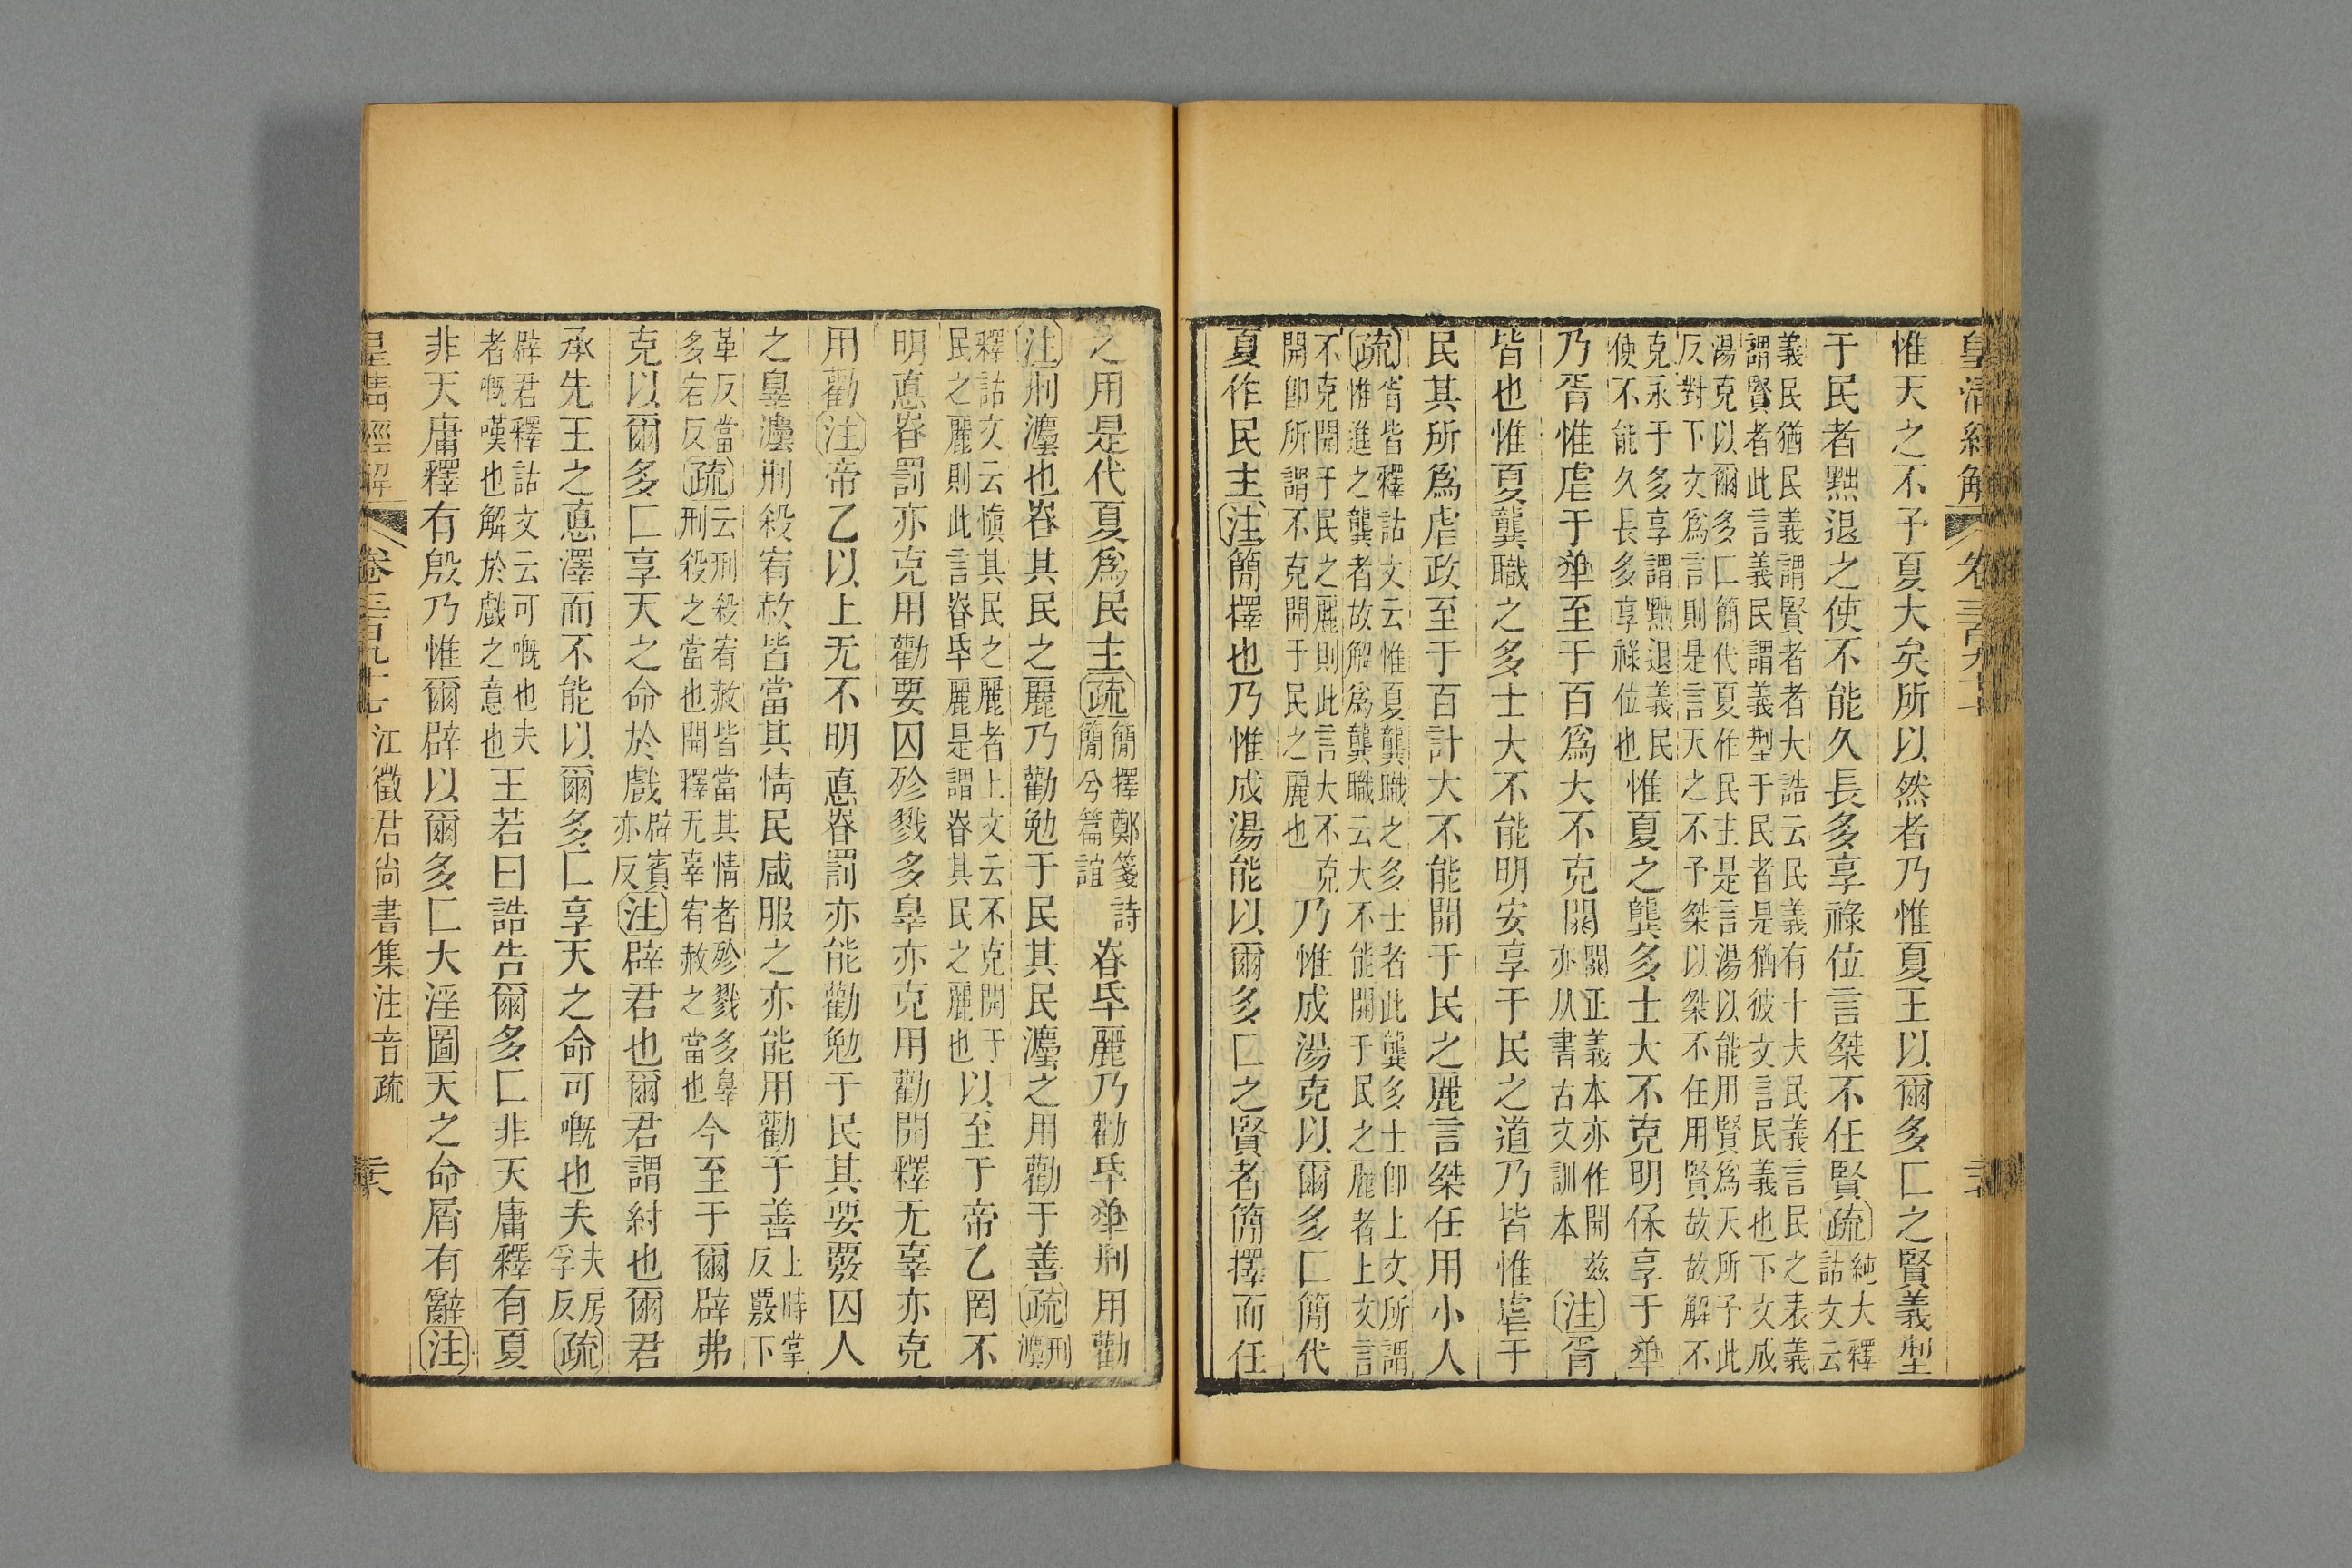 皇清經解
卷三百九十七
惟天之不予夏大矣所以然者乃惟夏王以爾多匚之賢義型
于民者黜退之使不能久長多享祿位言桀不任賢疏純大釋
詁文云
義民猶民義謂賢者者大誥云民義有十夫民義言民之表義
謂賢者此言義民謂義型于民者是猶彼文言民義也下文成
湯克以爾多匚簡代夏作民主是言湯以能用賢爲天所予此
反對下文爲言則是言天之不予桀以桀不任用賢故故解不
克永于多享謂黜退義民
使不能久長多享祿位也惟夏之龏多士大不克明保享于
乃胥惟虐于至于百爲大不克闓闓正義本亦作開兹
亦从書古文訓本注胥
皆也惟夏龏職之多士大不能明安享于民之道乃皆惟虐于
民其所爲虐政至于百計大不能開于民之麗言桀任用小人
疏胥皆釋詁文云惟夏龏職之多士者此龏多士卽上文所謂
惟進之龏者故解爲龏職云大不能開于民之麗者上文言
不克開于民之麗則此言大不克
開卽所謂不克開于民之麗也乃惟成湯克以爾多匚簡代
夏作民主注簡擇也乃惟成湯能以爾多匚之賢者簡擇而任
之用是代夏爲民主疏簡擇鄭箋詩
簡兮篇誼昚氒麗乃勸氒刑用勸
注刑灋也昚其民之麗乃勸勉于民其民灋之用勸于善疏刑
灋
釋詁文云愼其民之麗者上文云不克開于
民之麗則此言昚氒麗是謂昚其民之麗也以至于帝乙罔不
明惪昚罰亦克用勸要囚殄戮多辠亦克用勸開釋无辜亦克
用勸注帝乙以上无不明惪昚罰亦能勸勉于民其要覈囚人
之辠灋刑殺宥赦皆當其情民咸服之亦能用勸于善上時掌
反覈下
革反當
多宕反疏云刑殺宥赦皆當其情者殄戮多辠
刑殺之當也開釋无辜宥赦之當也今至于爾辟弗
克以爾多匚享天之命於戲辟賓
亦反注辟君也爾君謂紂也爾君
承先王之惪澤而不能以爾多匚享天之命可嘅也夫夫房
孚反疏
辟君釋詁文云可嘅也夫
者嘅嘆也解於戲之意也王若曰誥告爾多匚非天庸釋有夏
非天庸釋有殷乃惟爾辟以爾多匚大淫圖天之命屑有辭注
皇清經解
卷三百九十七
江徵君尚書集注音疏